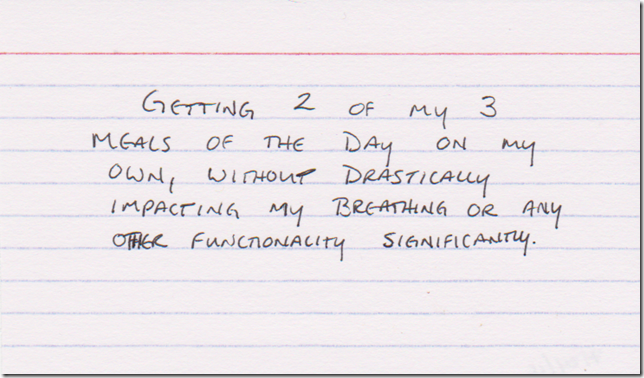 GETTING 2 OF MY 3
MEALS OF THE DAY ON MY
OWN, WITHOUT DRASTICALLY
IMPACTING MY BREATHING OR ANY
OTHER FUNCTIONALITY SIGNIFICANTLY.